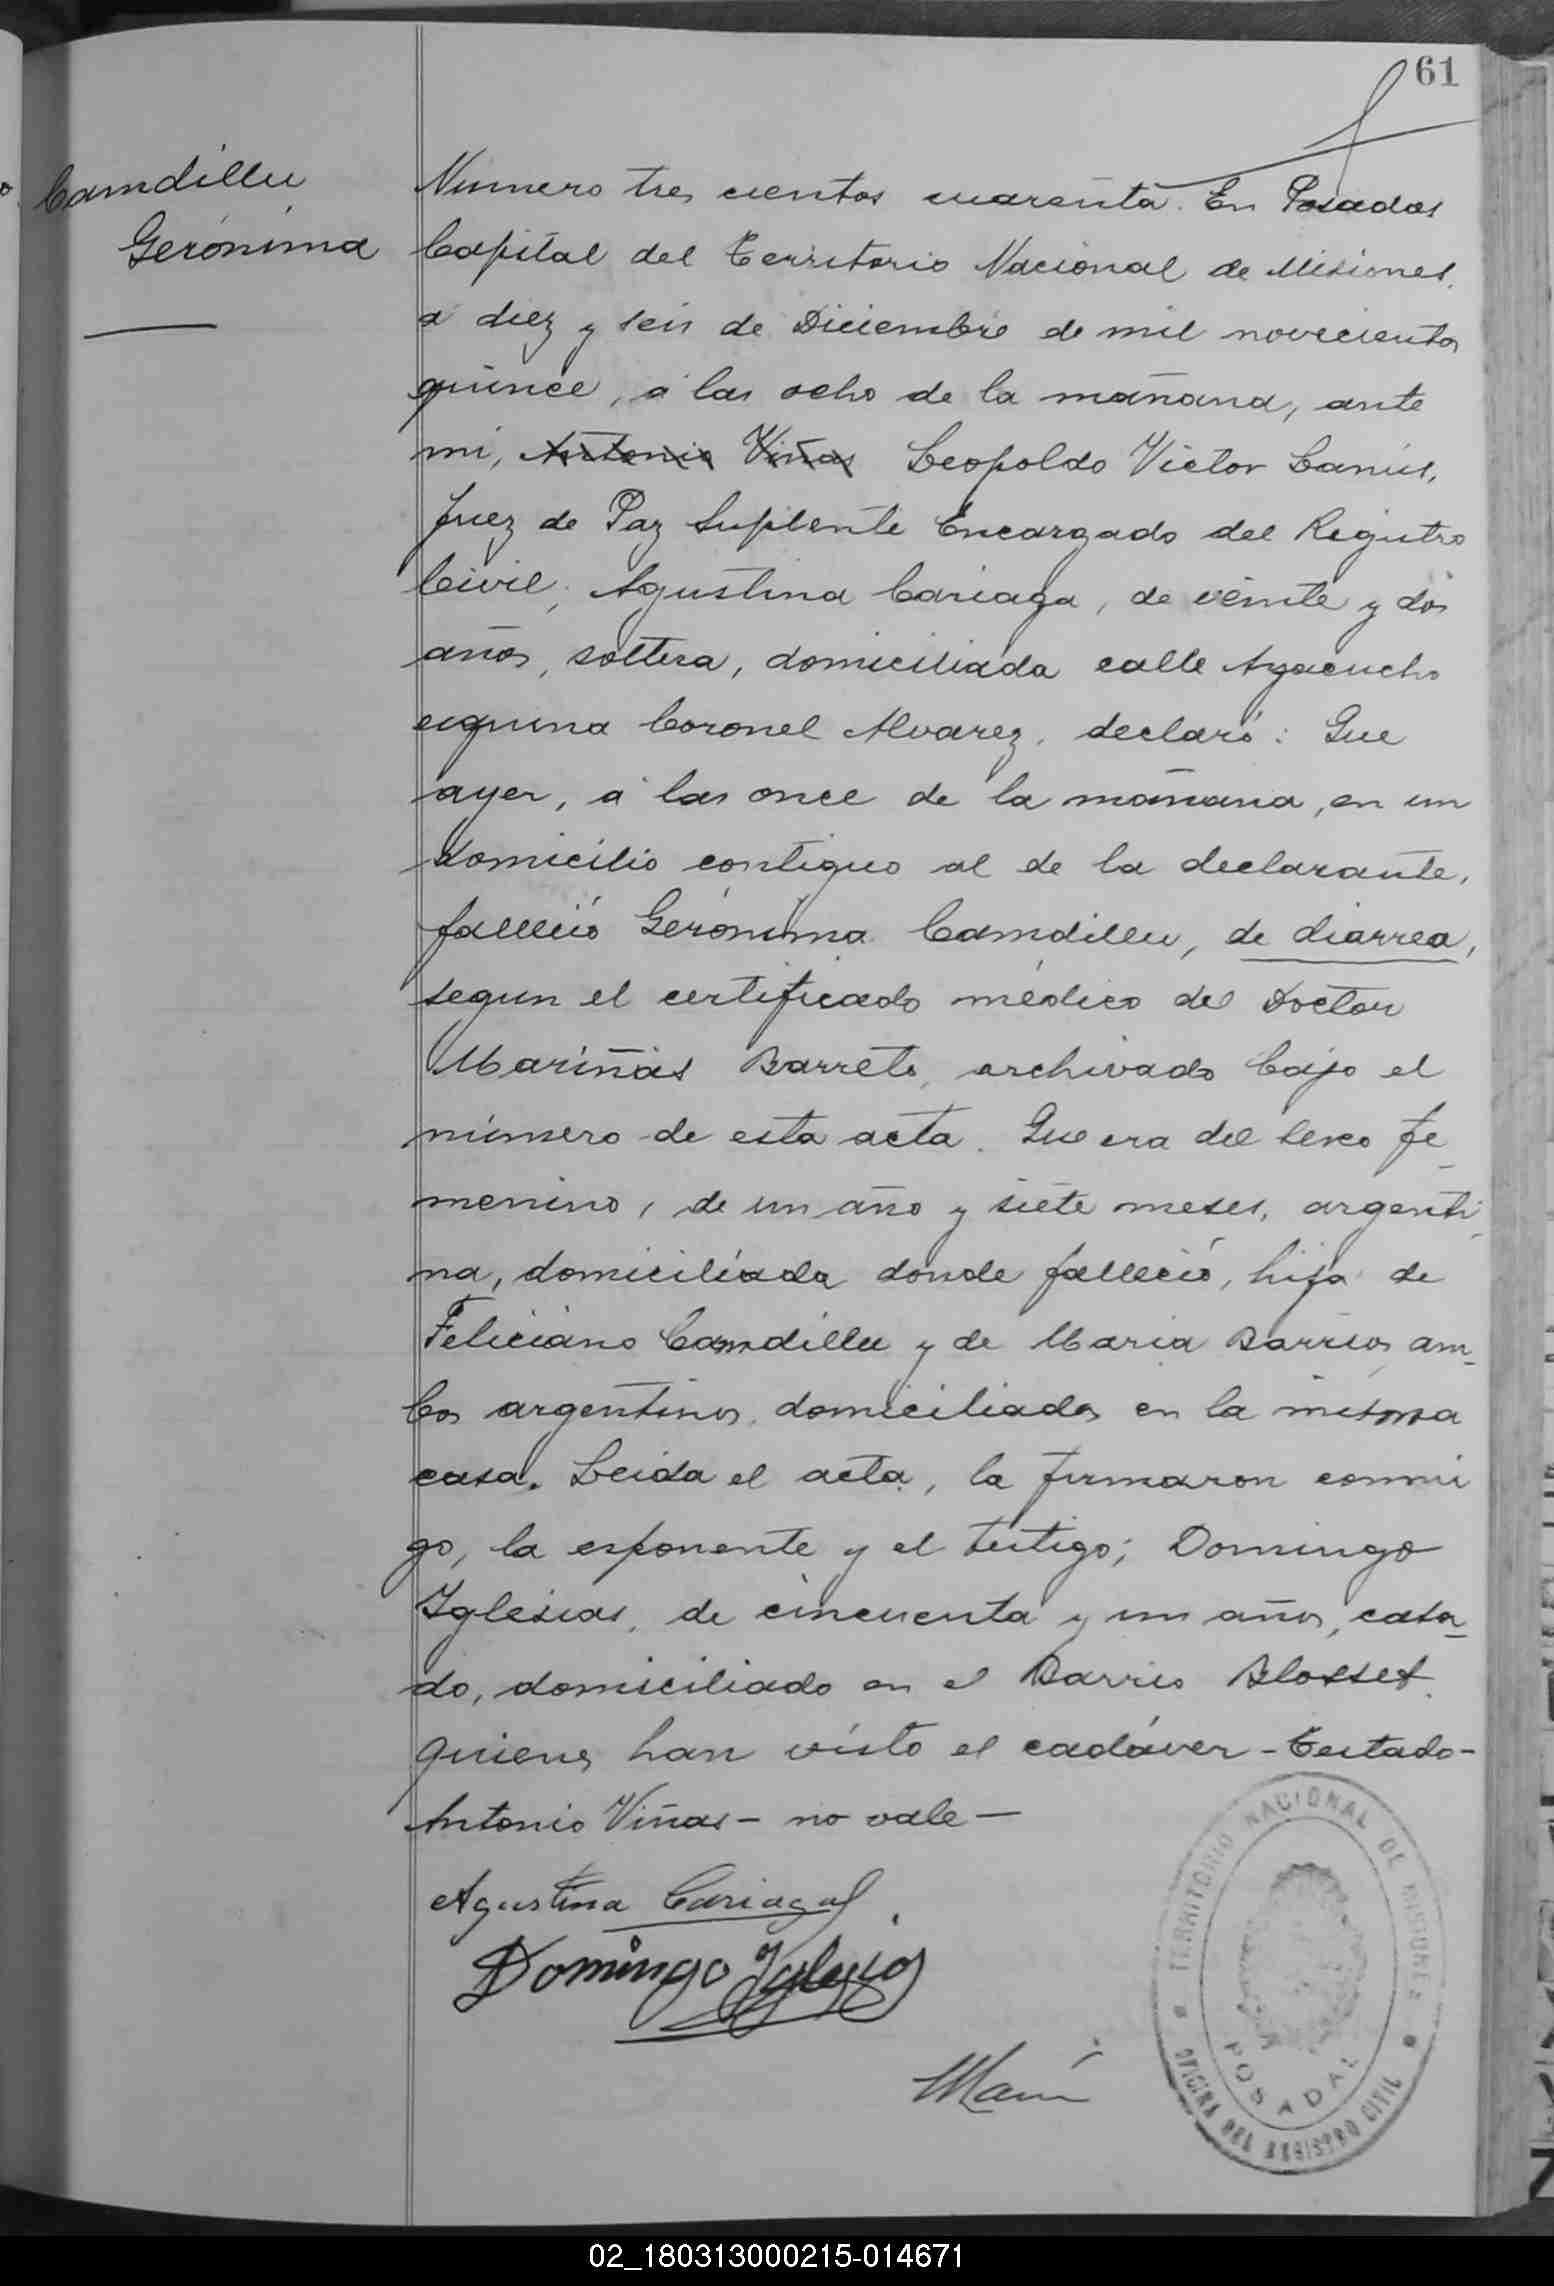 61
Camdillu
Gerónima
Número tres cientos cuarenta. En Posadas
Capital del Territorio Nacional de Misiones,
a diez y seis de Diciembre de mil novecientos
quince, á las ocho de la mañana, ante
mi, Antonio Viñas Leopoldo Victor Lanús,
Juez de Paz Suplente Encargado del Registro
Civil; Agustina Cariaga, de veinte y dos
años, soltera, domiciliada calle Ayacucho
esquina Coronel Alvarez, declaró: Que
ayer, á las once de la mañana, en un
domicilio contiguo al de la declarante,
falleció Gerónima Camdillu, de diarrea,
segun el certificado médico del Doctor
Mariñas Barreto, archivado bajo el
número de esta acta. Que era del sexo fe-
menino, de un año y siete meses, argenti-
na, domiciliada donde falleció, hija de
Feliciano Camdillu y de Maria Barrios, am-
bos argentinos, domiciliados en la misma
casa. Leida el acta, la firmaron conmi
go, la esponente y el testigo; Domingo
Iglesias, de cincuenta y un años, casa-
do, domiciliado en el Barrio Blosset
quienes han visto el cadáver - Testado -
Antonio Viñas - no vale -
Agustina Cariaga
Domingo Iglesias
TERRITORIO NACIONAL DE MISIONES
POSADAS
OFICINA DEL REGISTRO CIVIL
02_180313000215-014671